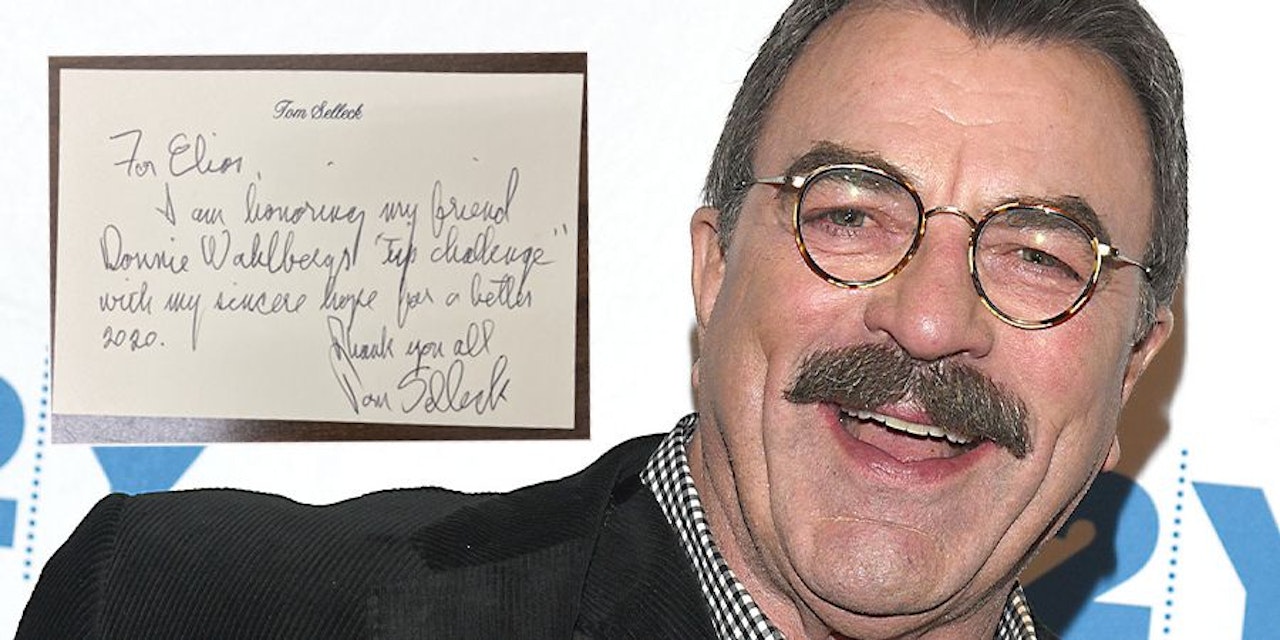 Tom Selleck
For Elios,
I am honoring my friend
Donnie Wahlbergs "Tip challenge"
with my sincere hope for a better
2020.
Thank you all
Tom Selleck
2Y
2Y